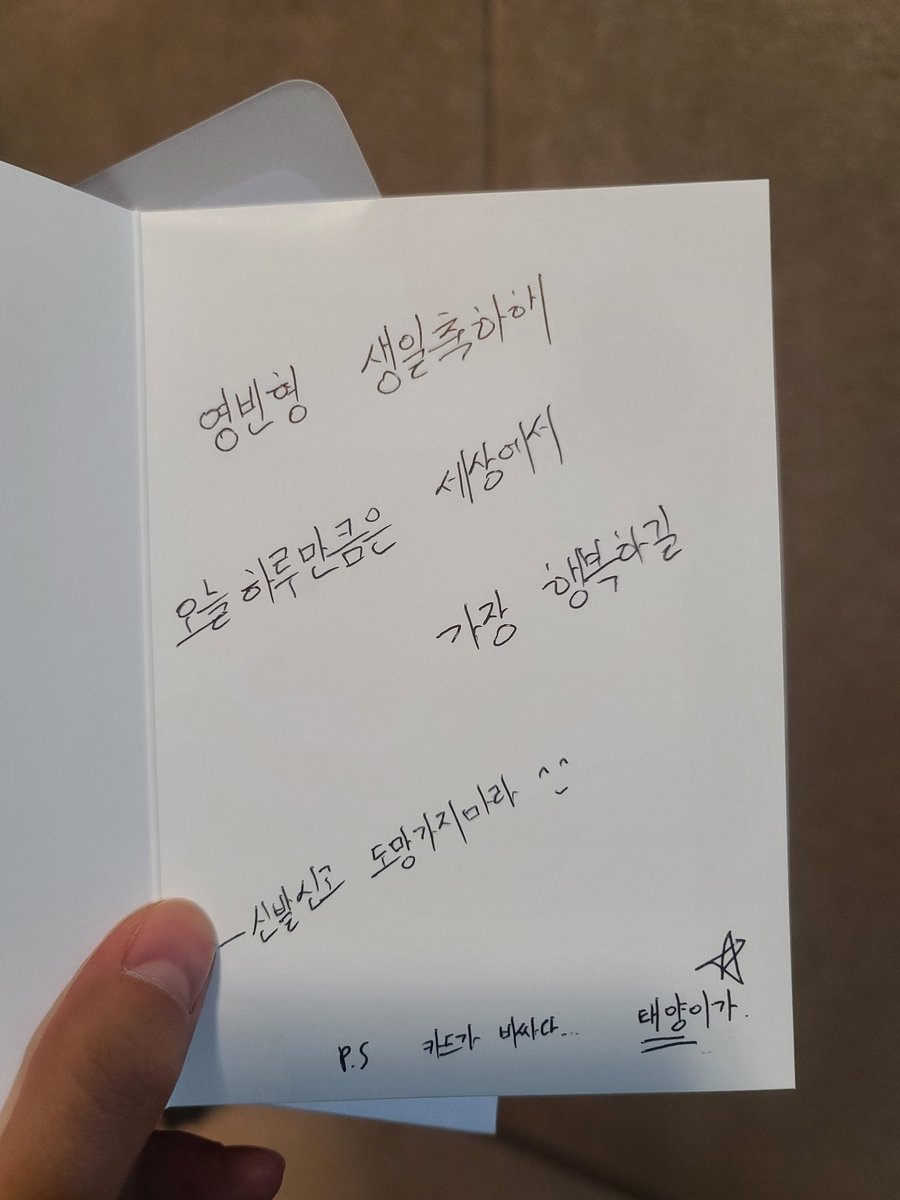 영빈형 생일축하해
오늘 하루만큼은 세상에서
가장 행복하길
- 신발신고 도망가지마라 ^^
P.S 카드가 비싸다...
태양이가.